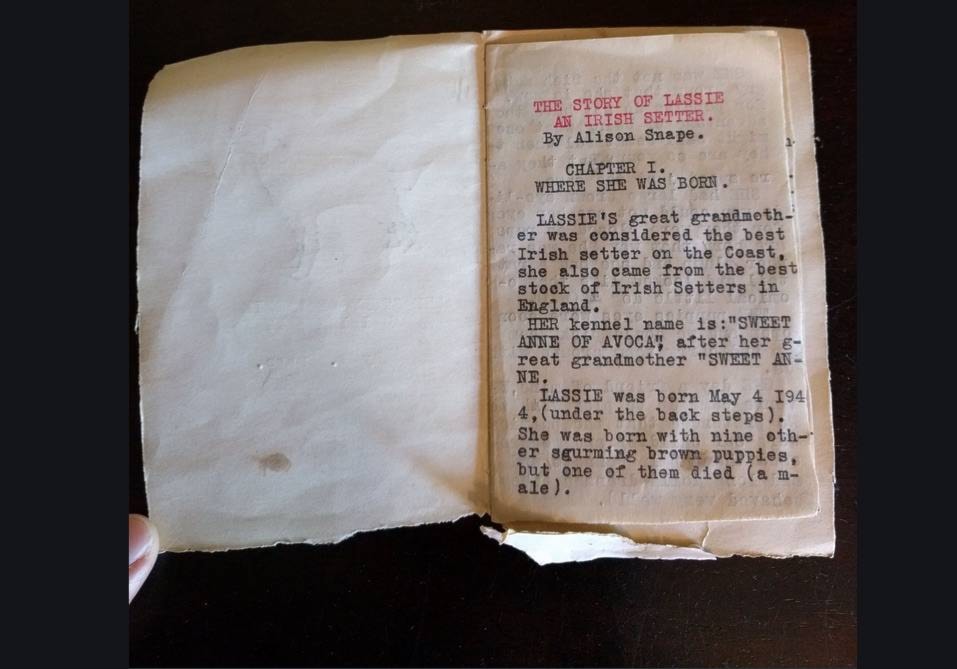 THE STORY OF LASSIE
AN IRISH SETTER.
By Alison Snape.
CHAPTER I.
WHERE SHE WAS BORN.
LASSIE'S great grandmoth-
er was considered the best
Irish setter on the Coast,
she also came from the best
stock of Irish Setters in
England.
HER kennel name is:"SWEET
ANNE OF AVOCA", after her g-
reat grandmother "SWEET AN-
NE.
LASSIE was born May 4 I94
4,(under the back steps).
She was born with nine oth-
er squrming brown puppies,
but one of them died (a m-
ale).